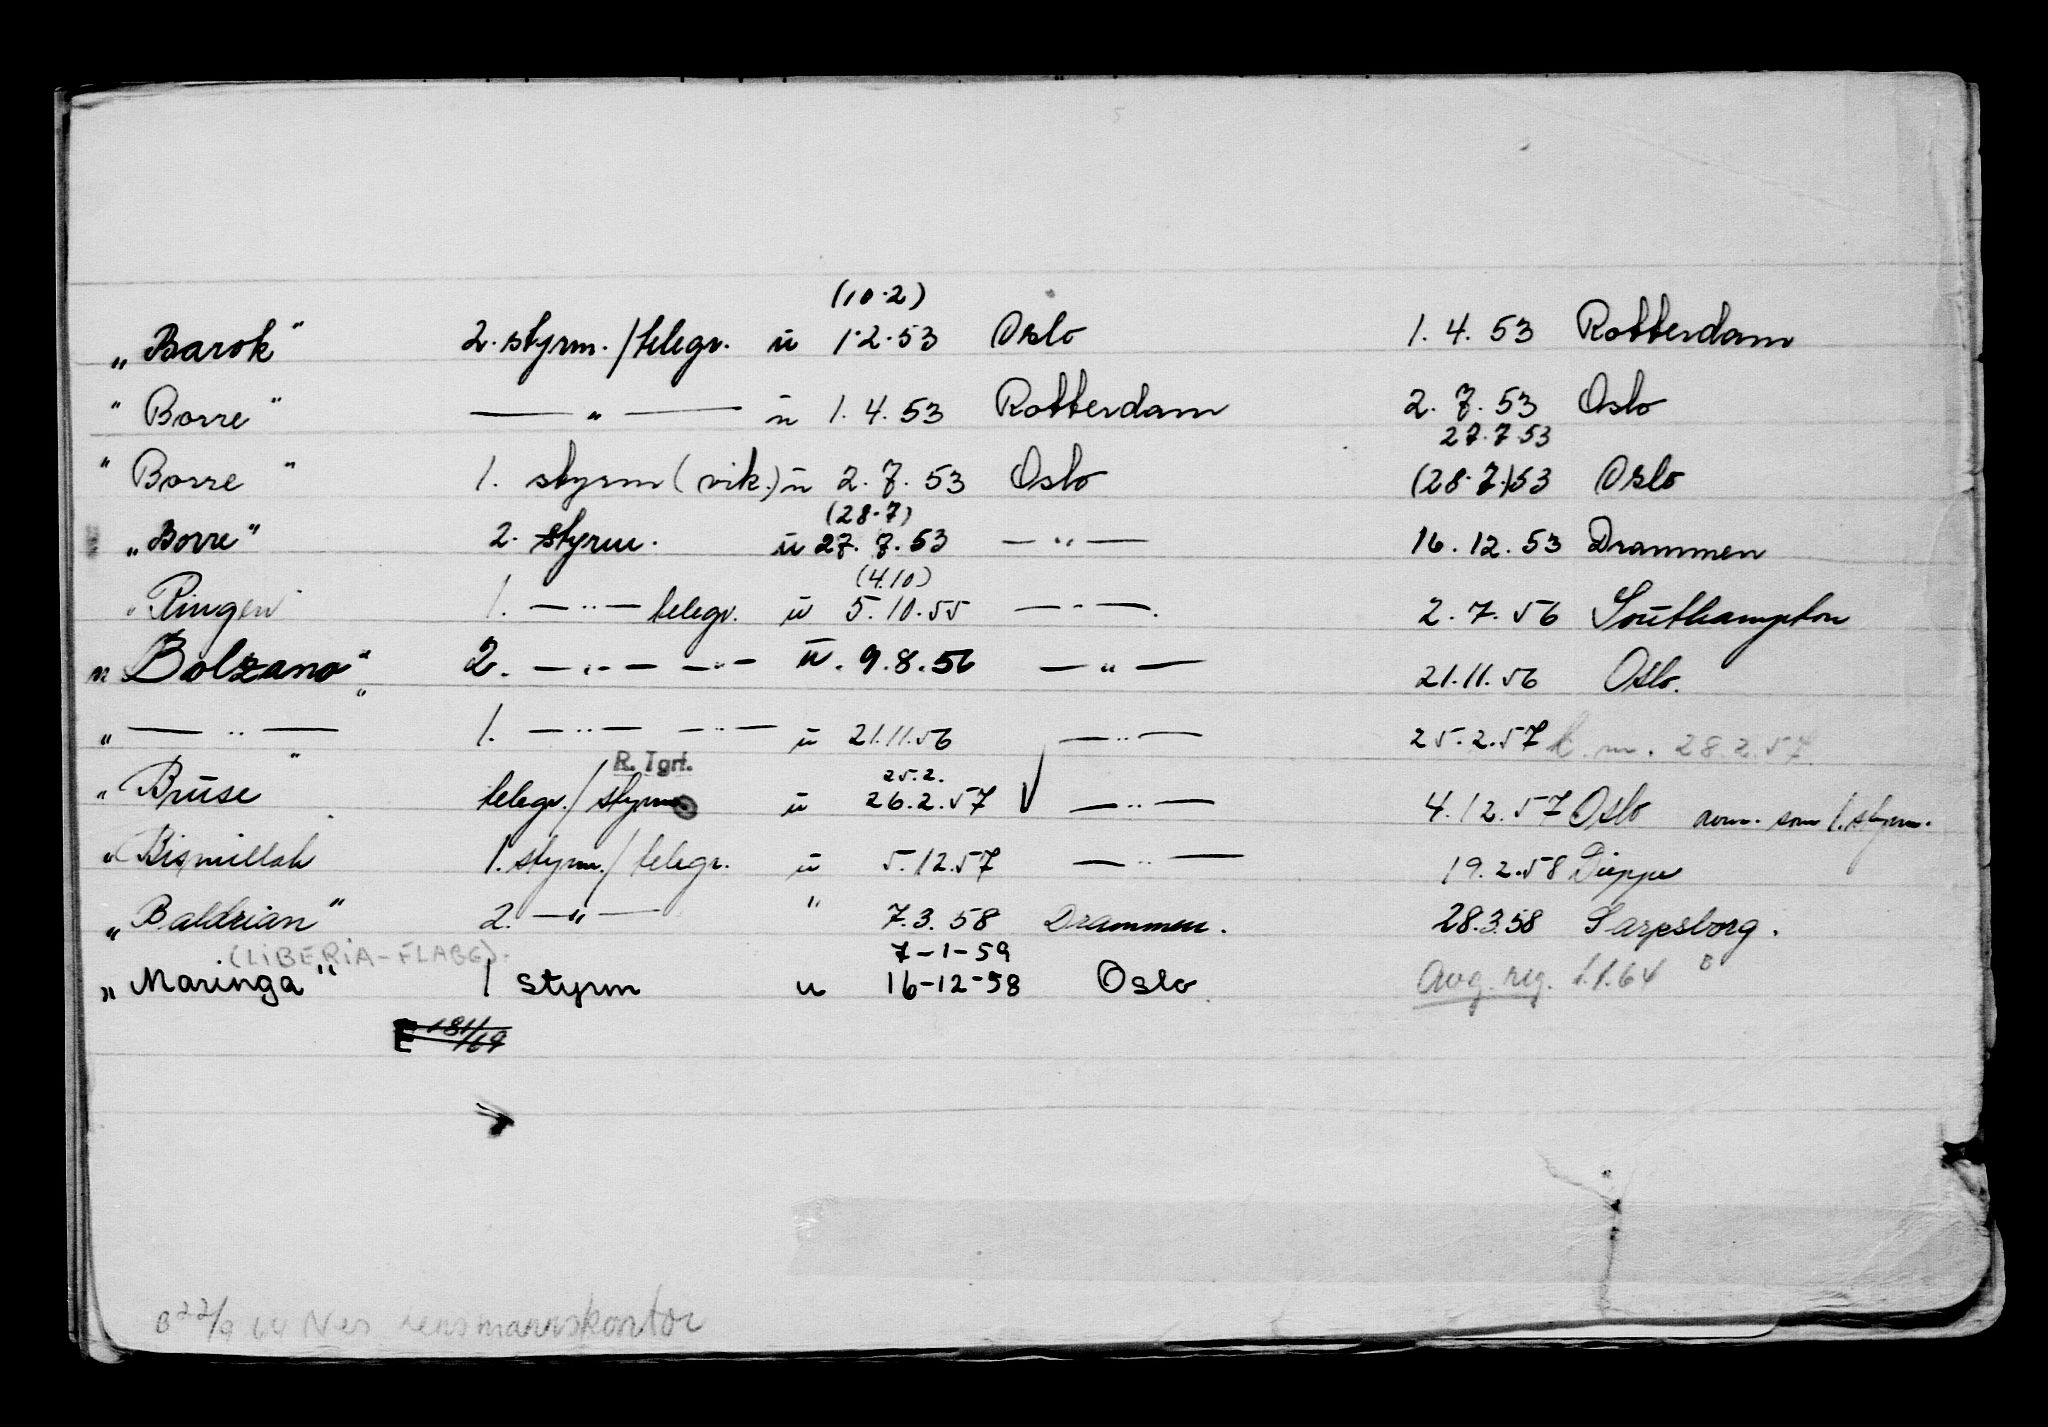 (10.2)
„Barok" 2. styrm. /telegr. u 1.2.53 Oslo 1. 4. 53 Rotterdam
" Borre " — " — u 1. 4. 53 Rotterdam 2. 7. 53 Oslo
27.7.53
" Borre " 1. styrm (vik.) u 2. 7. 53 Oslo (28.7.)53 Oslo
(28.7)
„Borre" 2. styrm. u 27. 7. 53 — " — 16. 12. 53 Drammen
(4.10)
"Ringen" 1. — " — telegr. u 5.10.55 — " —. 2. 7. 56 Southampton
" Bolzano" 2. — " — — " — u. 9.8.56 — " — 21.11.56 Oslo.
" — " — " 1. — " — — " — u 21.11.56 — " — 25.2.57 28.2.57
R. Tgrf. 25.2.
" Bruse " telegr./styrm. u 26.2.57 √ — " — 4.12.57 Oslo som 1. styrm.
"Bismillah 1. styrm./telegr. u 5.12.57 — " — 19.2.58 Dieppe
„Baldrian" 2. — " — " 7.3.58 Drammen. 28.3.58 Sarpsborg.
(LIBERIA-FLAGG). 7-1-59
„Maringa" 1 styrm u 16-12-58 Oslo Avg. reg. 1.1.64
E 181/69
B 22/9 64 Nes lensmannskontor